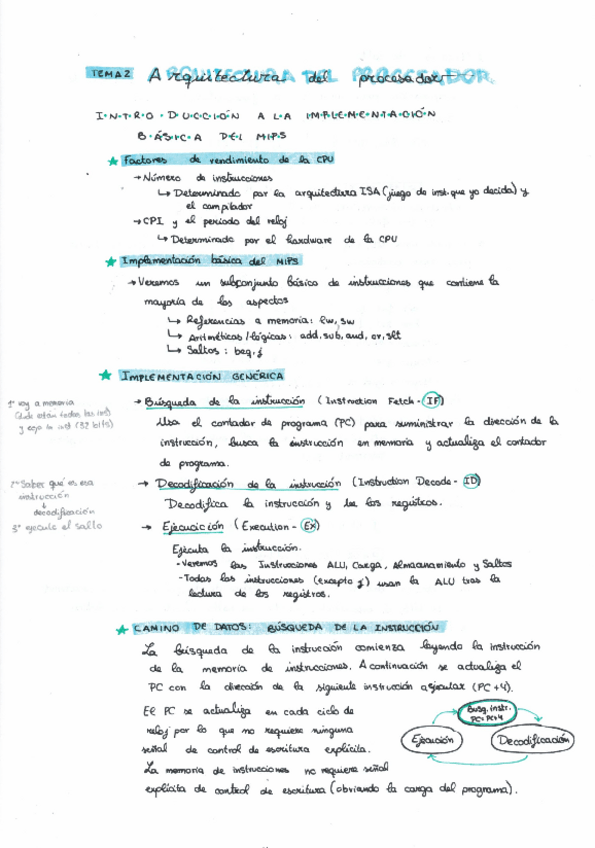 TEMA 2 Arquitectura del procesador
ARQUITECTURA DEL PROCESADOR
I·N·T·R·O·D·U·C·C·I·Ó·N A L·A I·M·P·L·E·M·E·N·T·A·C·I·Ó·N
B·Á·S·I·C·A D·E·L M·I·P·S
★ Factores de rendimiento de la CPU
→ Número de instrucciones
↳ Determinado por la arquitectura ISA (juego de inst. que yo decida) y
el compilador
→ CPI y el periodo del reloj
↳ Determinado por el hardware de la CPU
★ Implementación básica del MIPS
→ Veremos un subconjunto básico de instrucciones que contiene la
mayoría de los aspectos
↳ Referencias a memoria: lw, sw
↳ Aritméticos/lógicas: add, sub, and, or, slt
↳ Saltos: beq, j
★ IMPLEMENTACIÓN GENÉRICA
1º voy a memoria
y cojo la inst (32 bits)
→ Búsqueda de la instrucción (Instruction Fetch - IF)
Usa el contador de programa (PC) para suministrar la dirección de la
instrucción, busca la instrucción en memoria y actualiza el contador
de programa.
Saber qué es esa
instrucción
↓
decodificación
3º ejecuto el salto
→ Decodificación de la instrucción (Instruction Decode - ID)
Decodifica la instrucción y lee los registros.
→ Ejecución (Execution - EX)
Ejecuta la instrucción.
- Veremos las Instrucciones ALU, Carga, Almacenamiento y Saltos
- Todas las instrucciones (excepto j) usan la ALU tras la
lectura de los registros.
★ CAMINO DE DATOS: BÚSQUEDA DE LA INSTRUCCIÓN
La búsqueda de la instrucción comienza leyendo la instrucción
de la memoria de instrucciones. A continuación se actualiza el
PC con la dirección de la siguiente instrucción a ejecutar (PC+4).
El PC se actualiza en cada ciclo de
reloj por lo que no requiere ninguna
señal de control de escritura explícita.
La memoria de instrucciones no requiere señal
explícita de control de escritura (obviando la carga del programa).
Busq. instr.
PC=PC+4
Ejecución
Decodificación